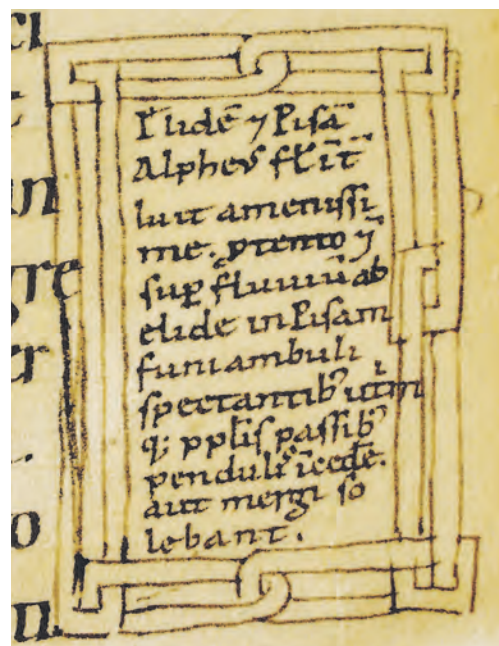 Elidē ⁊ Pisā
Alpheꝰ fl'īt
luit amenissi
me. ꝓtento ⁊̄
suꝑ fluuiū ab
elide in Pisam
funiambuli
spectantibꝰ utⁱm
q; pplis passibꝰ
pendulis īcedē.
aut mergi so
lebant.